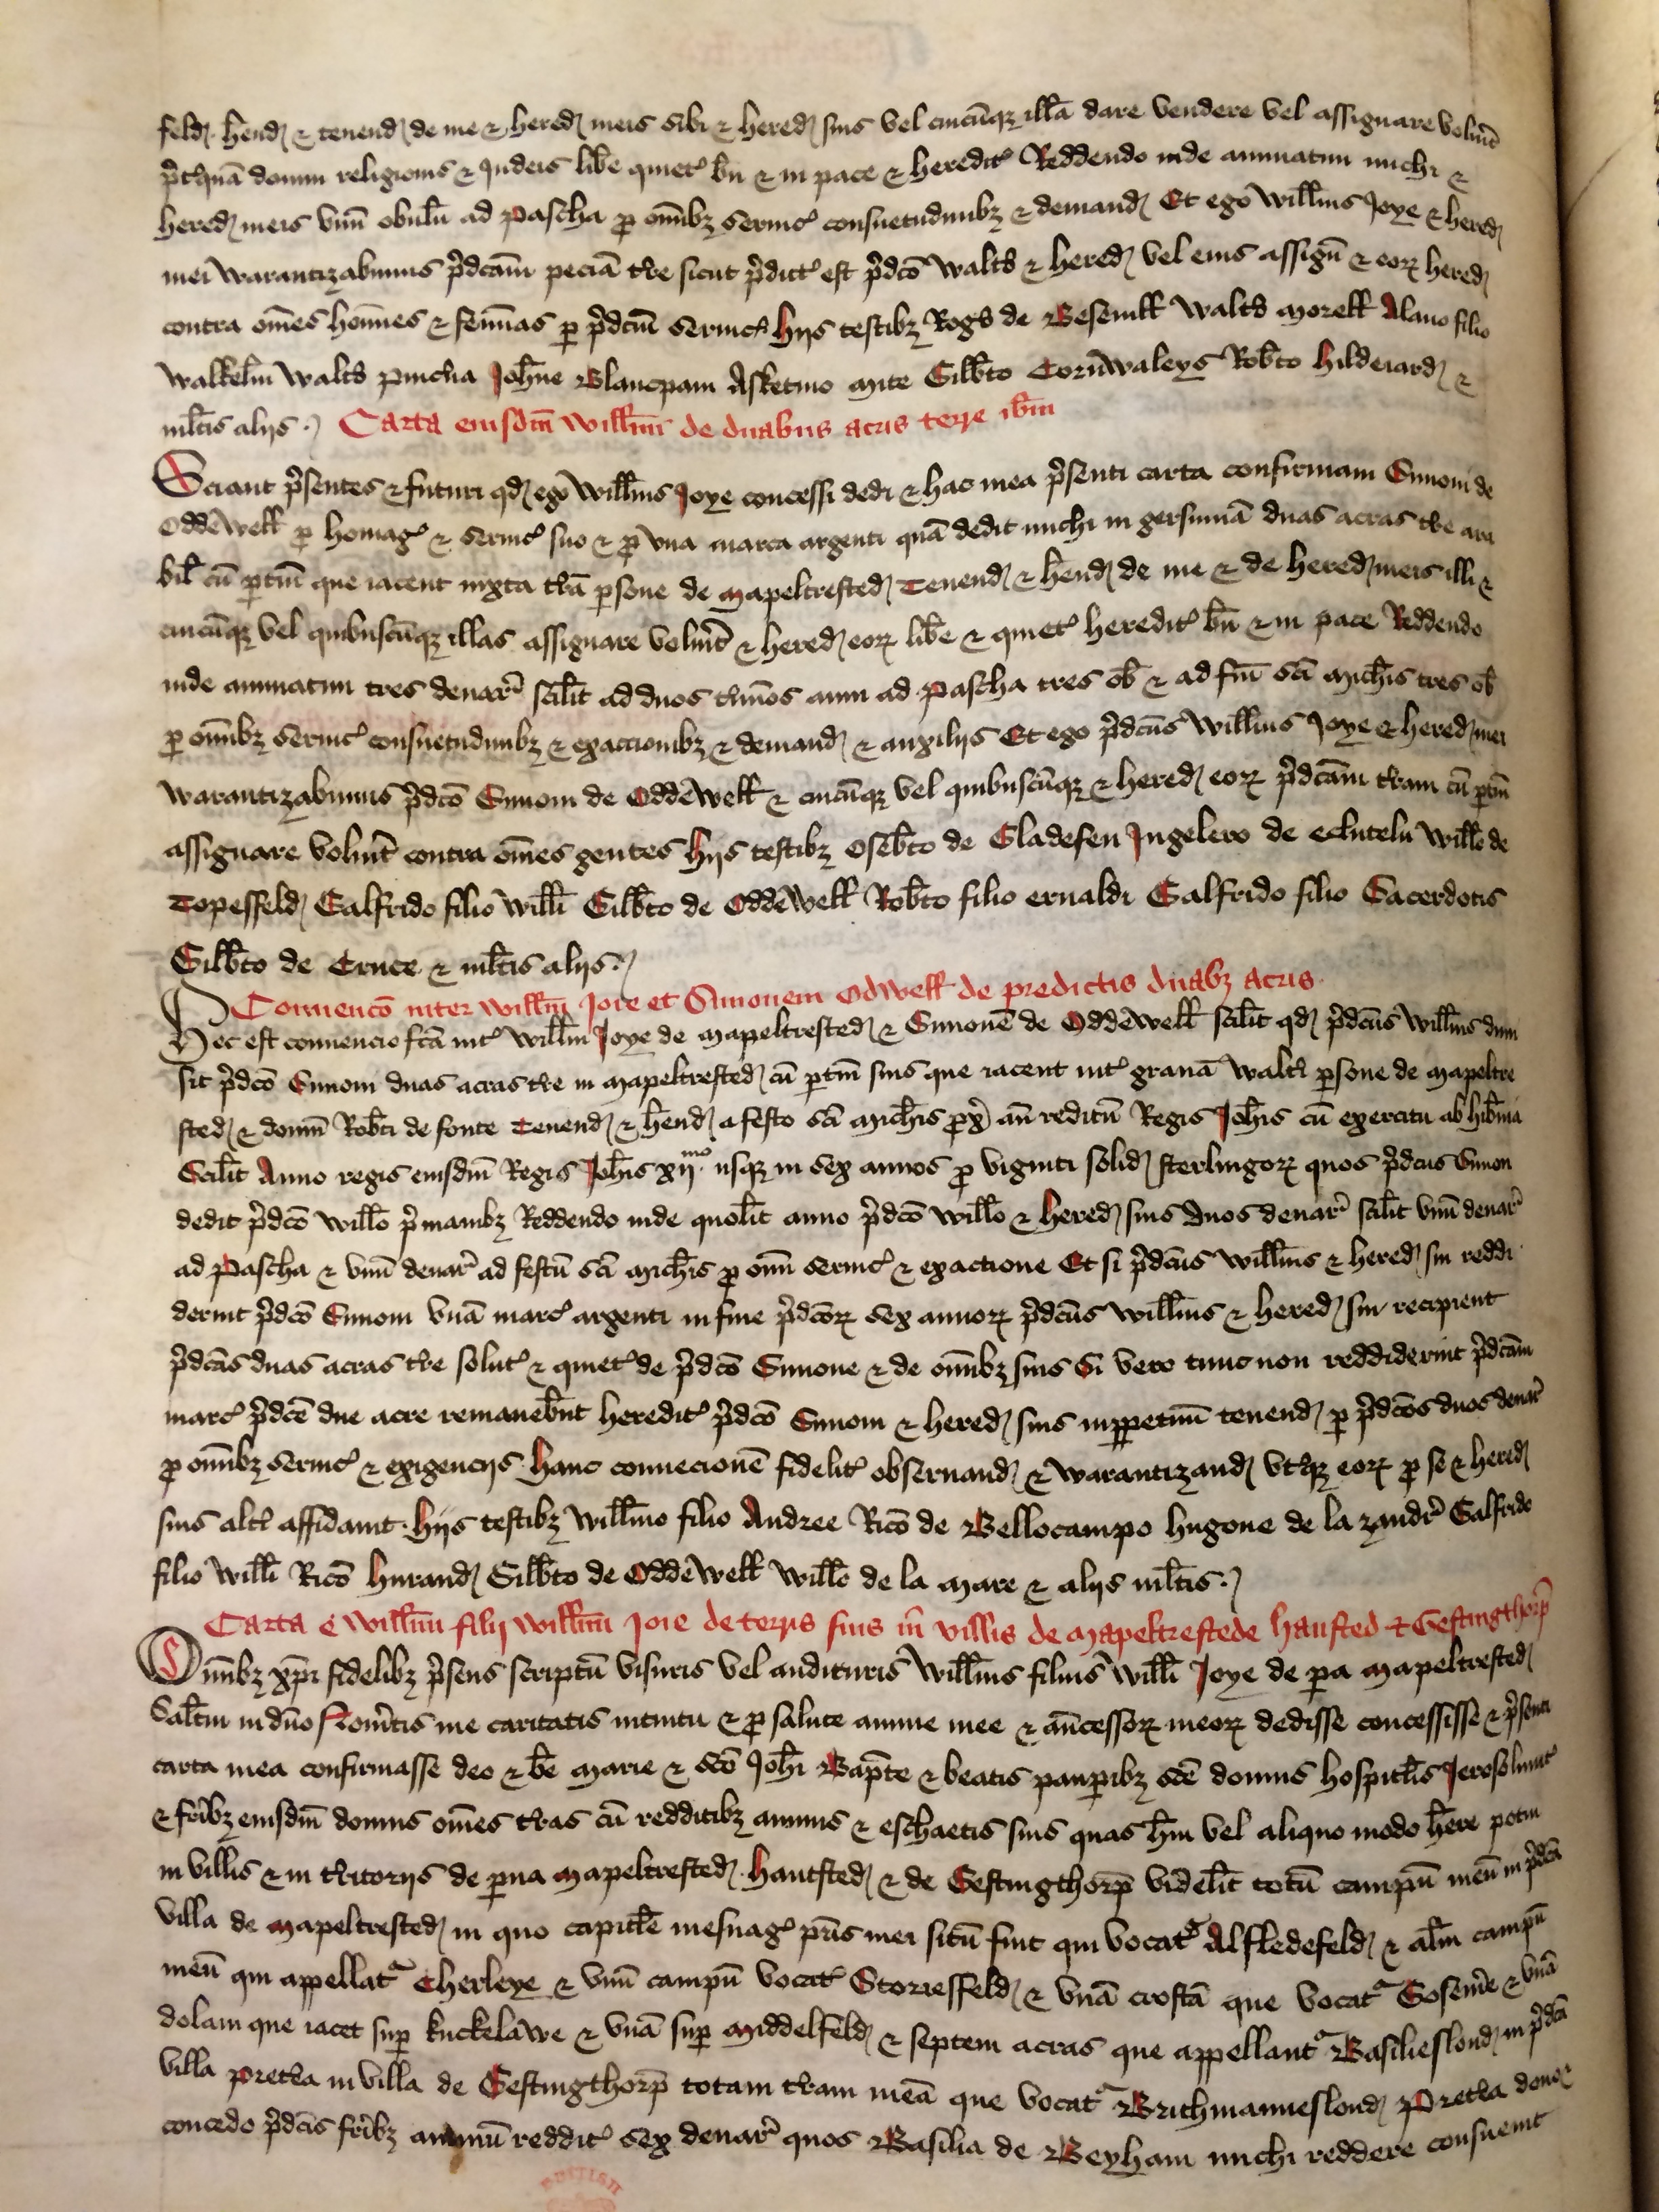 feld hend & tenend de me & hered meis sibi & hered suis vel cuicūqz illā dare vendere vel assignare voluit
p̄tquā domui religionis & Judeis libe quiet bn̄ & in pace & heredit Reddendo inde annuatim michi &
hered meis vnū obulū ad Pascha p omībz seruic consuetudinibz & demand Et ego Willm̄us Joye & hered
mei warantizabimus p̄dcām peciā tre sicut p̄dict est p̄dcō Walto & hered vel eius assign̄ & eorz hered
contra om̄es hoīnes & femīnas p p̄dcūm seruic hijs testibz Rogo de Beseuill Walto Morell Alano filio
Walkelm̄ Walto pincha Joh̄ne Blancpain Asketino Mite Gilbto Cornwaleys Robto hilderard &
mltis alijs Carta eiusdm̄ Willm̄i de duabus acris terre ibm̄
Sciant p̄sentes & futuri qd ego Willm̄us Joye concessi dedi & hac mea p̄senti carta confirmaui Simoni de
Oddēwell p homag & seruic suo & p vna marca argenti quā dedit michi in gersumā duas acras tre ara
bil cū ptin̄ que iacent iuxta trā psone de Mapeltrested Tenend & hend de me & de hered meis illi &
cuicūqz vel quibuscūqz illas assignare voluit & hered eorz libe & quiet heredit bn̄ & in pace Reddendo
inde annuatim tres denar scilt ad duos tmīos anni ad Pascha tres ob & ad fm̄ sci Michis tres ob
p omībz seruic consuetudinibz & exaccionibz & demand & auxilijs Et ego p̄dcūs Willm̄us Joye & hered mei
warantizabimus p̄dcō Simoni de Oddēwell & cuicūqz vel quibuscūqz & hered eorz p̄dcām tram cū ptin̄
assignare voluit contra om̄es gentes hijs testibz Osebto de Gladefen Jngelero de eclutelu Willo de
Topesfeld Galfrido filio Willi Gilbto de Oddēwell Robto filio ernaldi Galfrido filio Sacerdotis
Gilbto de Cruce & mltis alijs
Conuencō inter Willm̄ Joie et Simonem Odwell de predictis duabz acris
Hec est conuencio fcā int Willm̄ Joye de Mapeltrested & Simonē de Oddēwell scilt qd p̄dcūs Willm̄us dimi
sit p̄dcō Simoni duas acras tre in Mapeltrested cū ptin̄ suis que iacent int granā Walti psone de Mapeltre
sted & domū Robti de fonte Tenend & hend a festo sci Michis pxº an̄ reditū Regis Johis cū exercitu ab hibnia
Scilt Anno regis eiusdm̄ Regis Johis xijmo usqz in sex annos p viginti solid sterlingorz quos p̄dcūs Simon
dedit p̄dcō Willo p̄manibz Reddendo inde quolit anno p̄dcō Willo & hered suis duos denar scilt vnū denar
ad Pascha & vnū denar ad festū sci Michis p omī seruic & exactione Et si p̄dcūs Willm̄us & hered sui reddi
derint p̄dcō Simoni vnā marc argenti in fine p̄dcorz sex annorz p̄dcūs Willm̄us & hered sui recipient
p̄dcās duas acras tre solut & quiet de p̄dcō Simone & de omībz suis Si vero tunc non reddiderint p̄dcām
marc p̄dcē due acre remanebnt heredit p̄dcō Simoni & hered suis inppetuū tenend p p̄dcōs duos denar
p omībz seruic & exigencijs hanc conuecionē fidelit obseruand & warantizand vtqz eorz p se & hered
suis altī affidauit hijs testibz Willm̄o filio Andree Ricō de Bellocampo hugone de la zandr Galfrido
filio Willi Ricō hurand Gilbto de Oddēwell Willo de la Mare & alijs mltis
Carta e Willm̄i filij Willm̄i Joie de terris suis in villis de Mapeltrestede hausted & Gestingthorp
Omībz xpi fidelibz p̄sens scriptū visuris vel audituris Willm̄us filius Willi Joye de pa Mapeltrested
Saltm in dn̄o Nouitis me caritatis intuitu & p salute anime mee & an̄cessorz meorz dedisse concessisse & p̄senti
carta mea confirmasse deo & be Marie & scō Johi Bap̄te & beatis paupibz scē domus hospitlis Jerosolimit
& fribz eiusdm̄ domus om̄es tras cū redditibz annuis & eschaetis suis quas hui vel aliquo modo here potui
in villis & in tritorijs de pua Mapeltrested hautsted & de Gestingthorp videlit totū campū meū in p̄dcā
villa de Mapeltrested in quo capitle mesuag pris mei sitū fuit qui vocat Alfledefeld & alm̄ campū
meū qui appellat Cherleye & vnū campū vocat Storiesfeld & vnā croftā que vocat Gosem̄e & vnā
dolam que iacet sup kuckelawe & vnā sup Middelfeld & septem acras que appellant Basilieslond in p̄dcā
villa pretea in villa de Gestingthorp totam tram meā que vocat Brichmanneslond Pretea dono &
concedo p̄dcis fribz annuū reddit sex denar quos Basilia de Beyham michi reddere consueuit